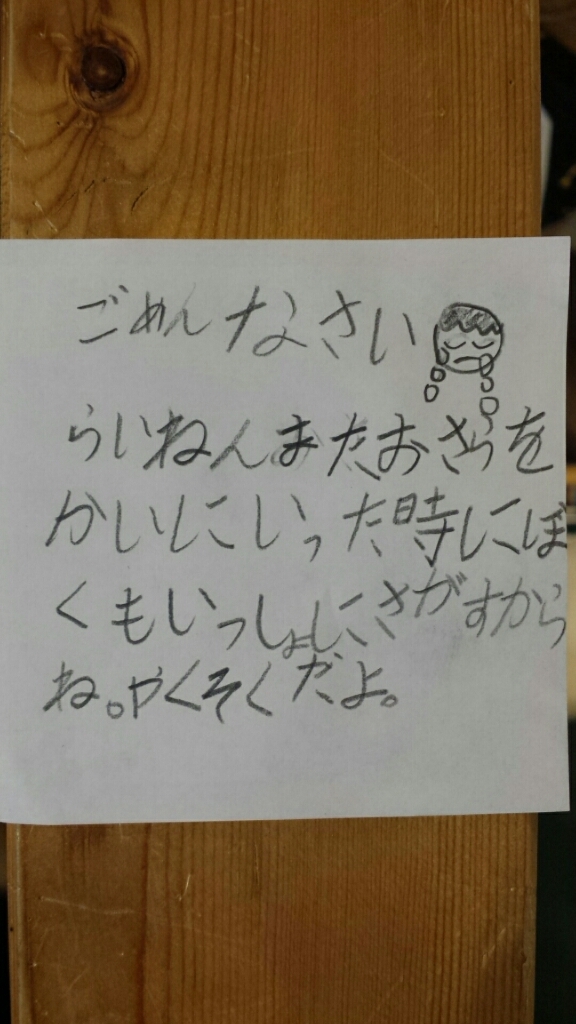 ごめんなさい
らいねんまたおさらを
かいにいった時にぼ
くもいっしょにさがすから
ね。やくそくだよ。